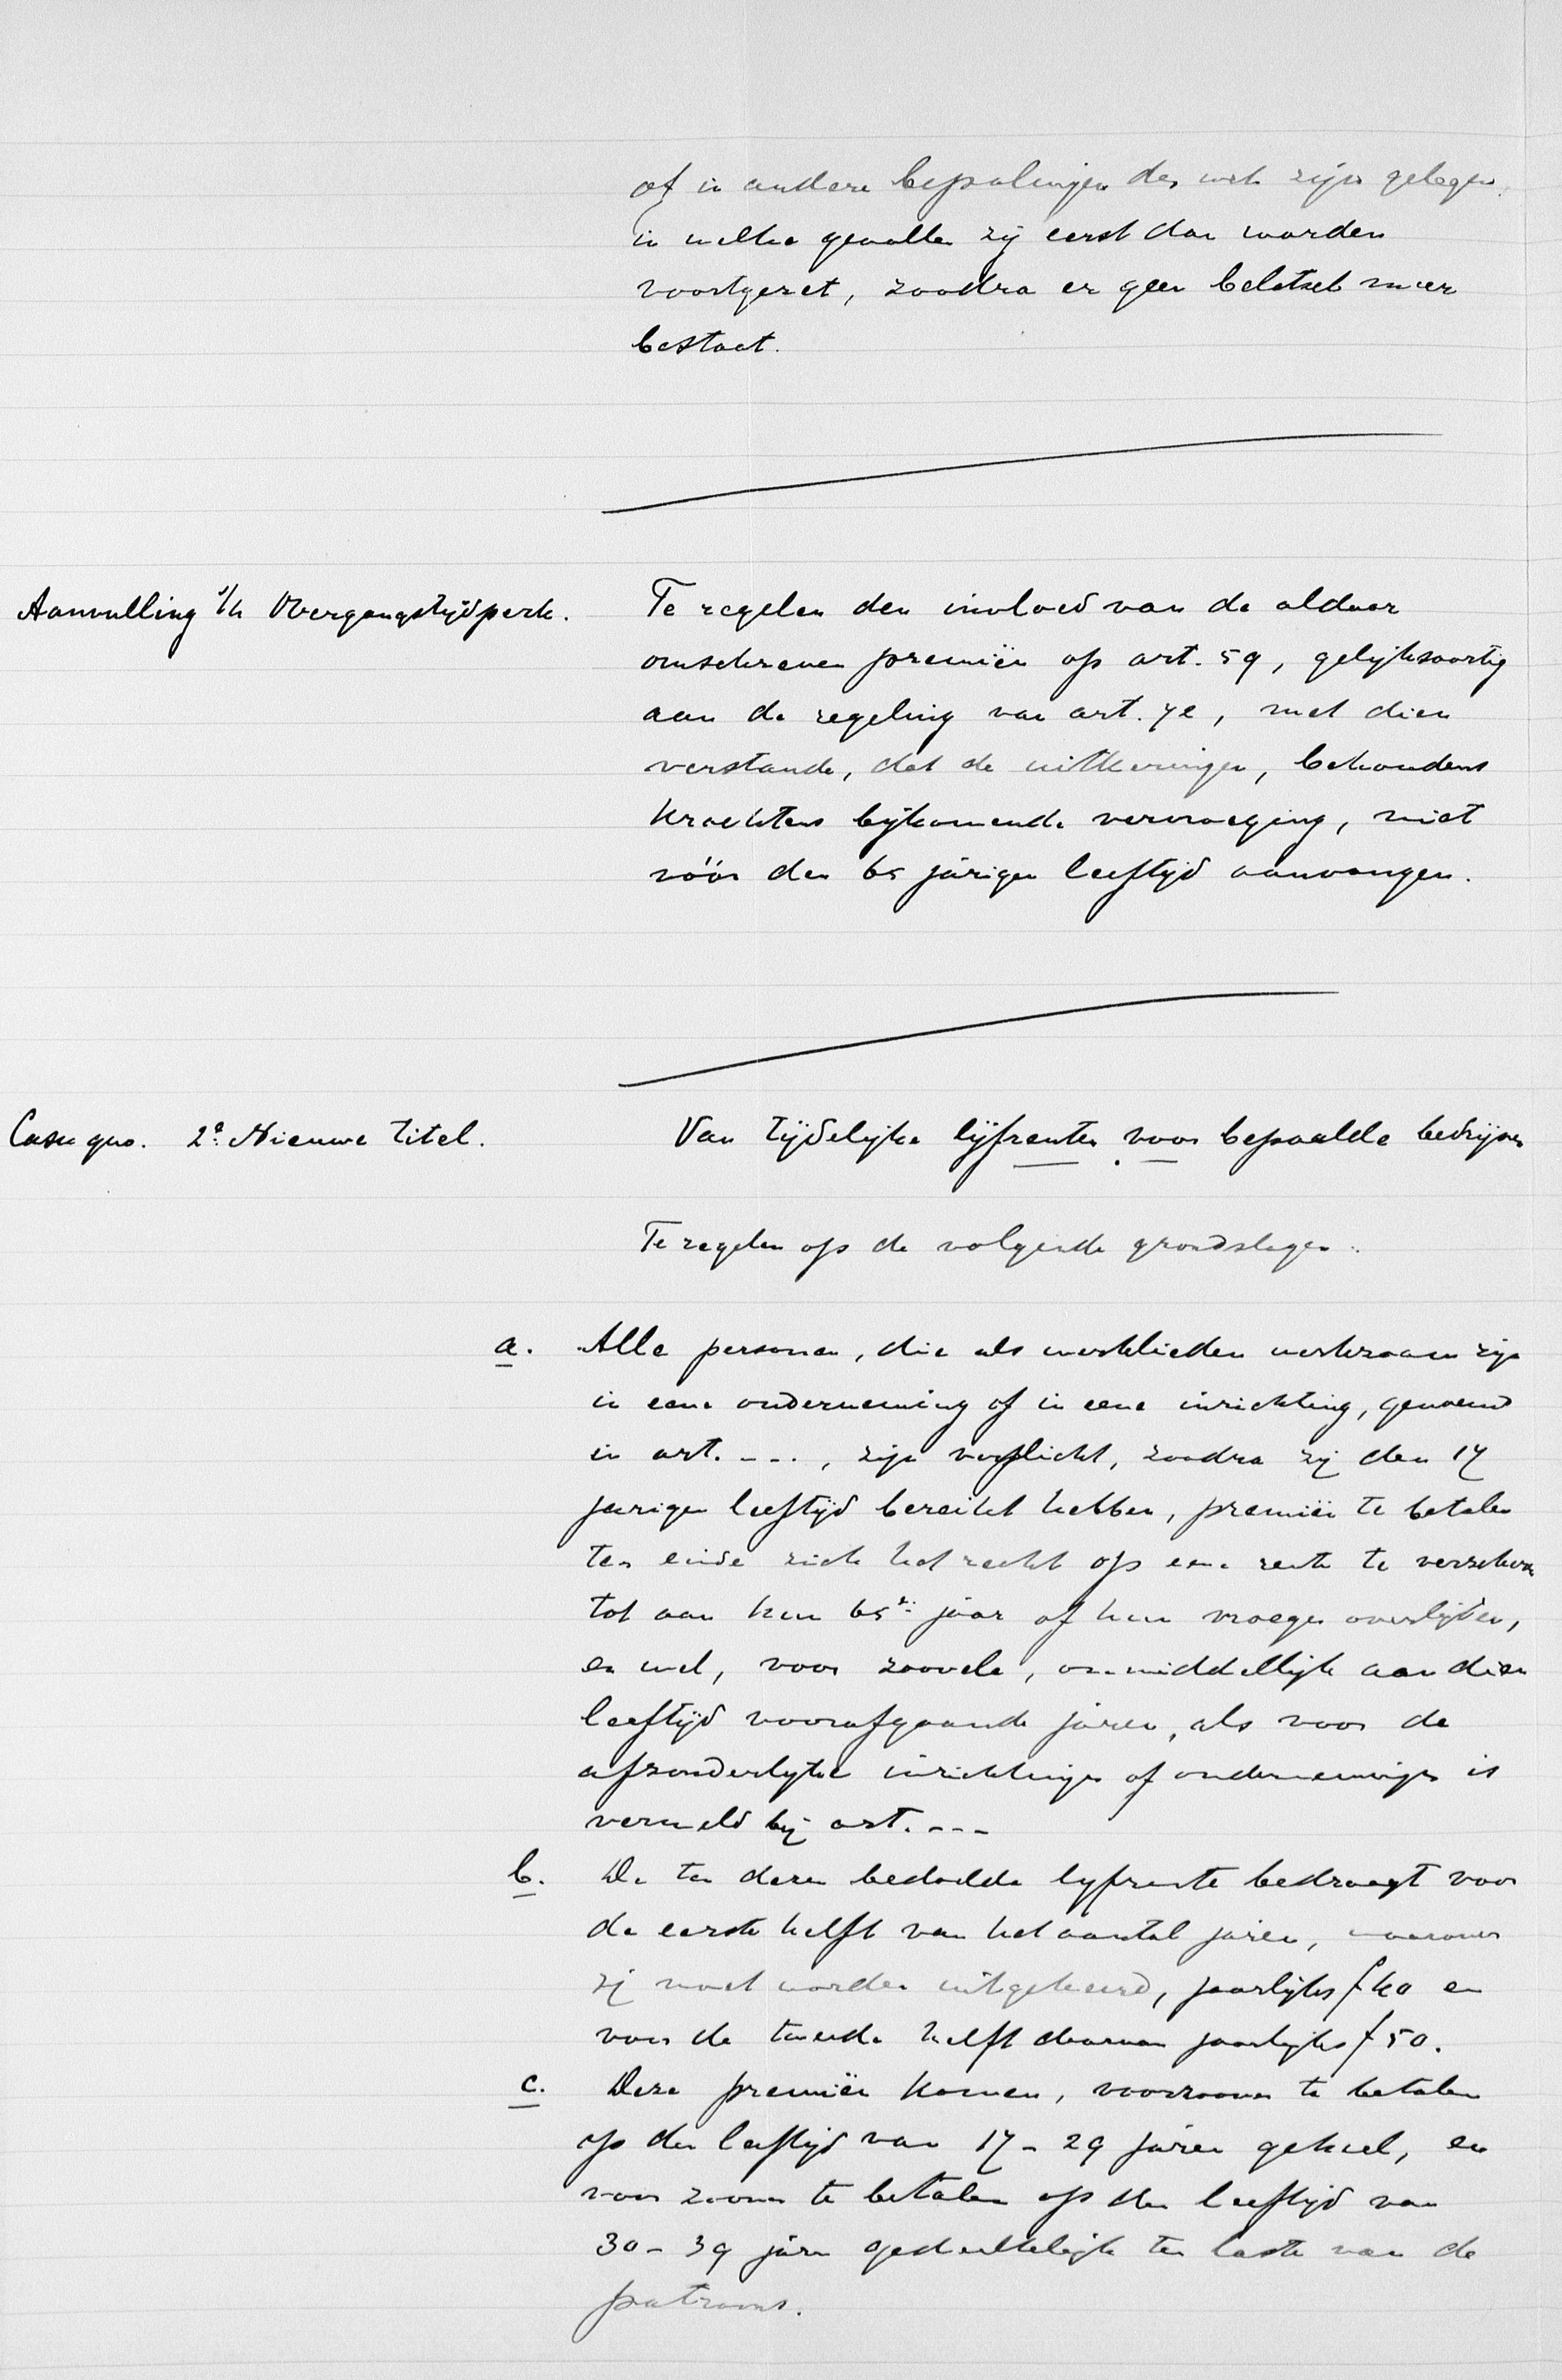 of in andere bepalingen der wet zijn gelegen,
in welke gevallen zij eerst dan worden
voortgezet, zoodra er geen beletsel meer
bestaat.
Aanvulling v/h Overgangstijdperk.
Te regelen den invloed van de aldaar
omschreven premiën op art. 59, gelijksoortig
aan de regeling van art. 7e, met dien
verstande, dat de uitkeeringen, behoudens
krachtens bijkomende vervroeging, niet
vóór den 65 jarigen leeftijd aanvangen.
Casu quo. 2e. Nieuwe titel.
Van tijdelijke lijfrenten voor bepaalde bedrijven
Te regelen op de volgende grondslagen:
a. Alle personen, die als werklieden werkzaam zijn
in eene onderneming of in eene inrichting, genoemd
in art. ---, zijn verplicht, zoodra zij den 17
jarigen leeftijd bereikt hebben, premiën te betalen
ten einde zich het recht op eene rente te verzekeren
tot aan hun 65e jaar of hun vroeger overlijden,
en wel, voor zoovele, onmiddellijk aan dien
leeftijd voorafgaande jaren, als voor de
afzonderlijke inrichtingen of ondernemingen is
vermeld bij art. ---
b. De ten deze bedoelde lijfrente bedraagt voor
de eerste helft van het aantal jaren, waarover
zij moet worden uitgekeerd, jaarlijks f 40 en
voor de tweede helft daarvan jaarlijks f 50.
c. Deze premiën komen, voorzoover te betalen
op den leeftijd van 17 - 29 jaren geheel, en
voor zoover te betalen op den leeftijd van
30 - 39 jaren gedeeltelijk ten laste van de
patroons.